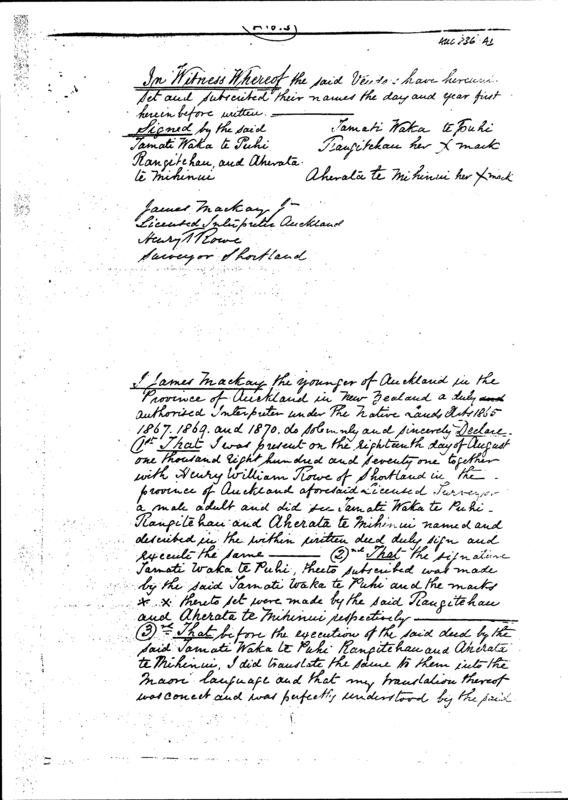 In Witness Whereof the said Vendors have hereunto
set and subscribed their names the day and year first
herein before written.
Signed by the said Tamati Waka te Puhi
Tamati Waka te Puhi Rangitehau her X mark
Rangitehau, and Aherata
te Mihinui Aherata te Mihinui her X mark
James Mackay Jr
Licensed Interpreter Auckland
Henry Rowe
Surveyor Shortland
I James Mackay the younger of Auckland in the
Province of Auckland in New Zealand a duly
authorised Interpreter under The Native Lands Acts 1865
1867. 1869. and 1870. do solemnly and sincerely Declare.
1st That I was present on the eighteenth day of August
one thousand eight hundred and seventy one together
with Henry William Rowe of Shortland in the
province of Auckland aforesaid Licensed Surveyor
a male adult and did see Tamati Waka te Puhi
Rangitehau and Aherata te Mihinui named and
described in the within written deed duly sign and
execute the same — (2)nd That the signature
Tamati Waka te Puhi, thereto subscribed was made
by the said Tamati Waka te Puhi and the marks
x x thereto set were made by the said Rangitehau
and Aherata te Mihinui respectively
(3)rd That before the execution of the said deed by the
said Tamati Waka te Puhi Rangitehau and Aherata
te Mihinui, I did translate the same to them into the
Maori language and that my translation thereof
was correct and was perfectly understood by the said